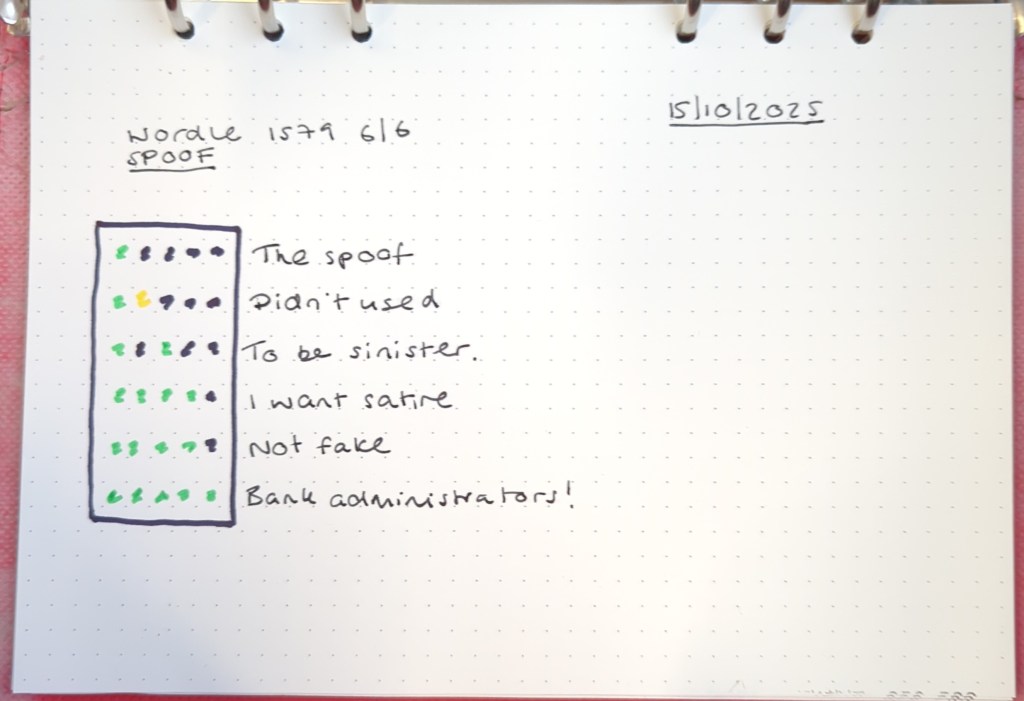 15/10/2025
Wordle 1579 6/6
SPOOF
The spoof
Didn't used
To be sinister.
I want satire
Not fake
Bank administrators!